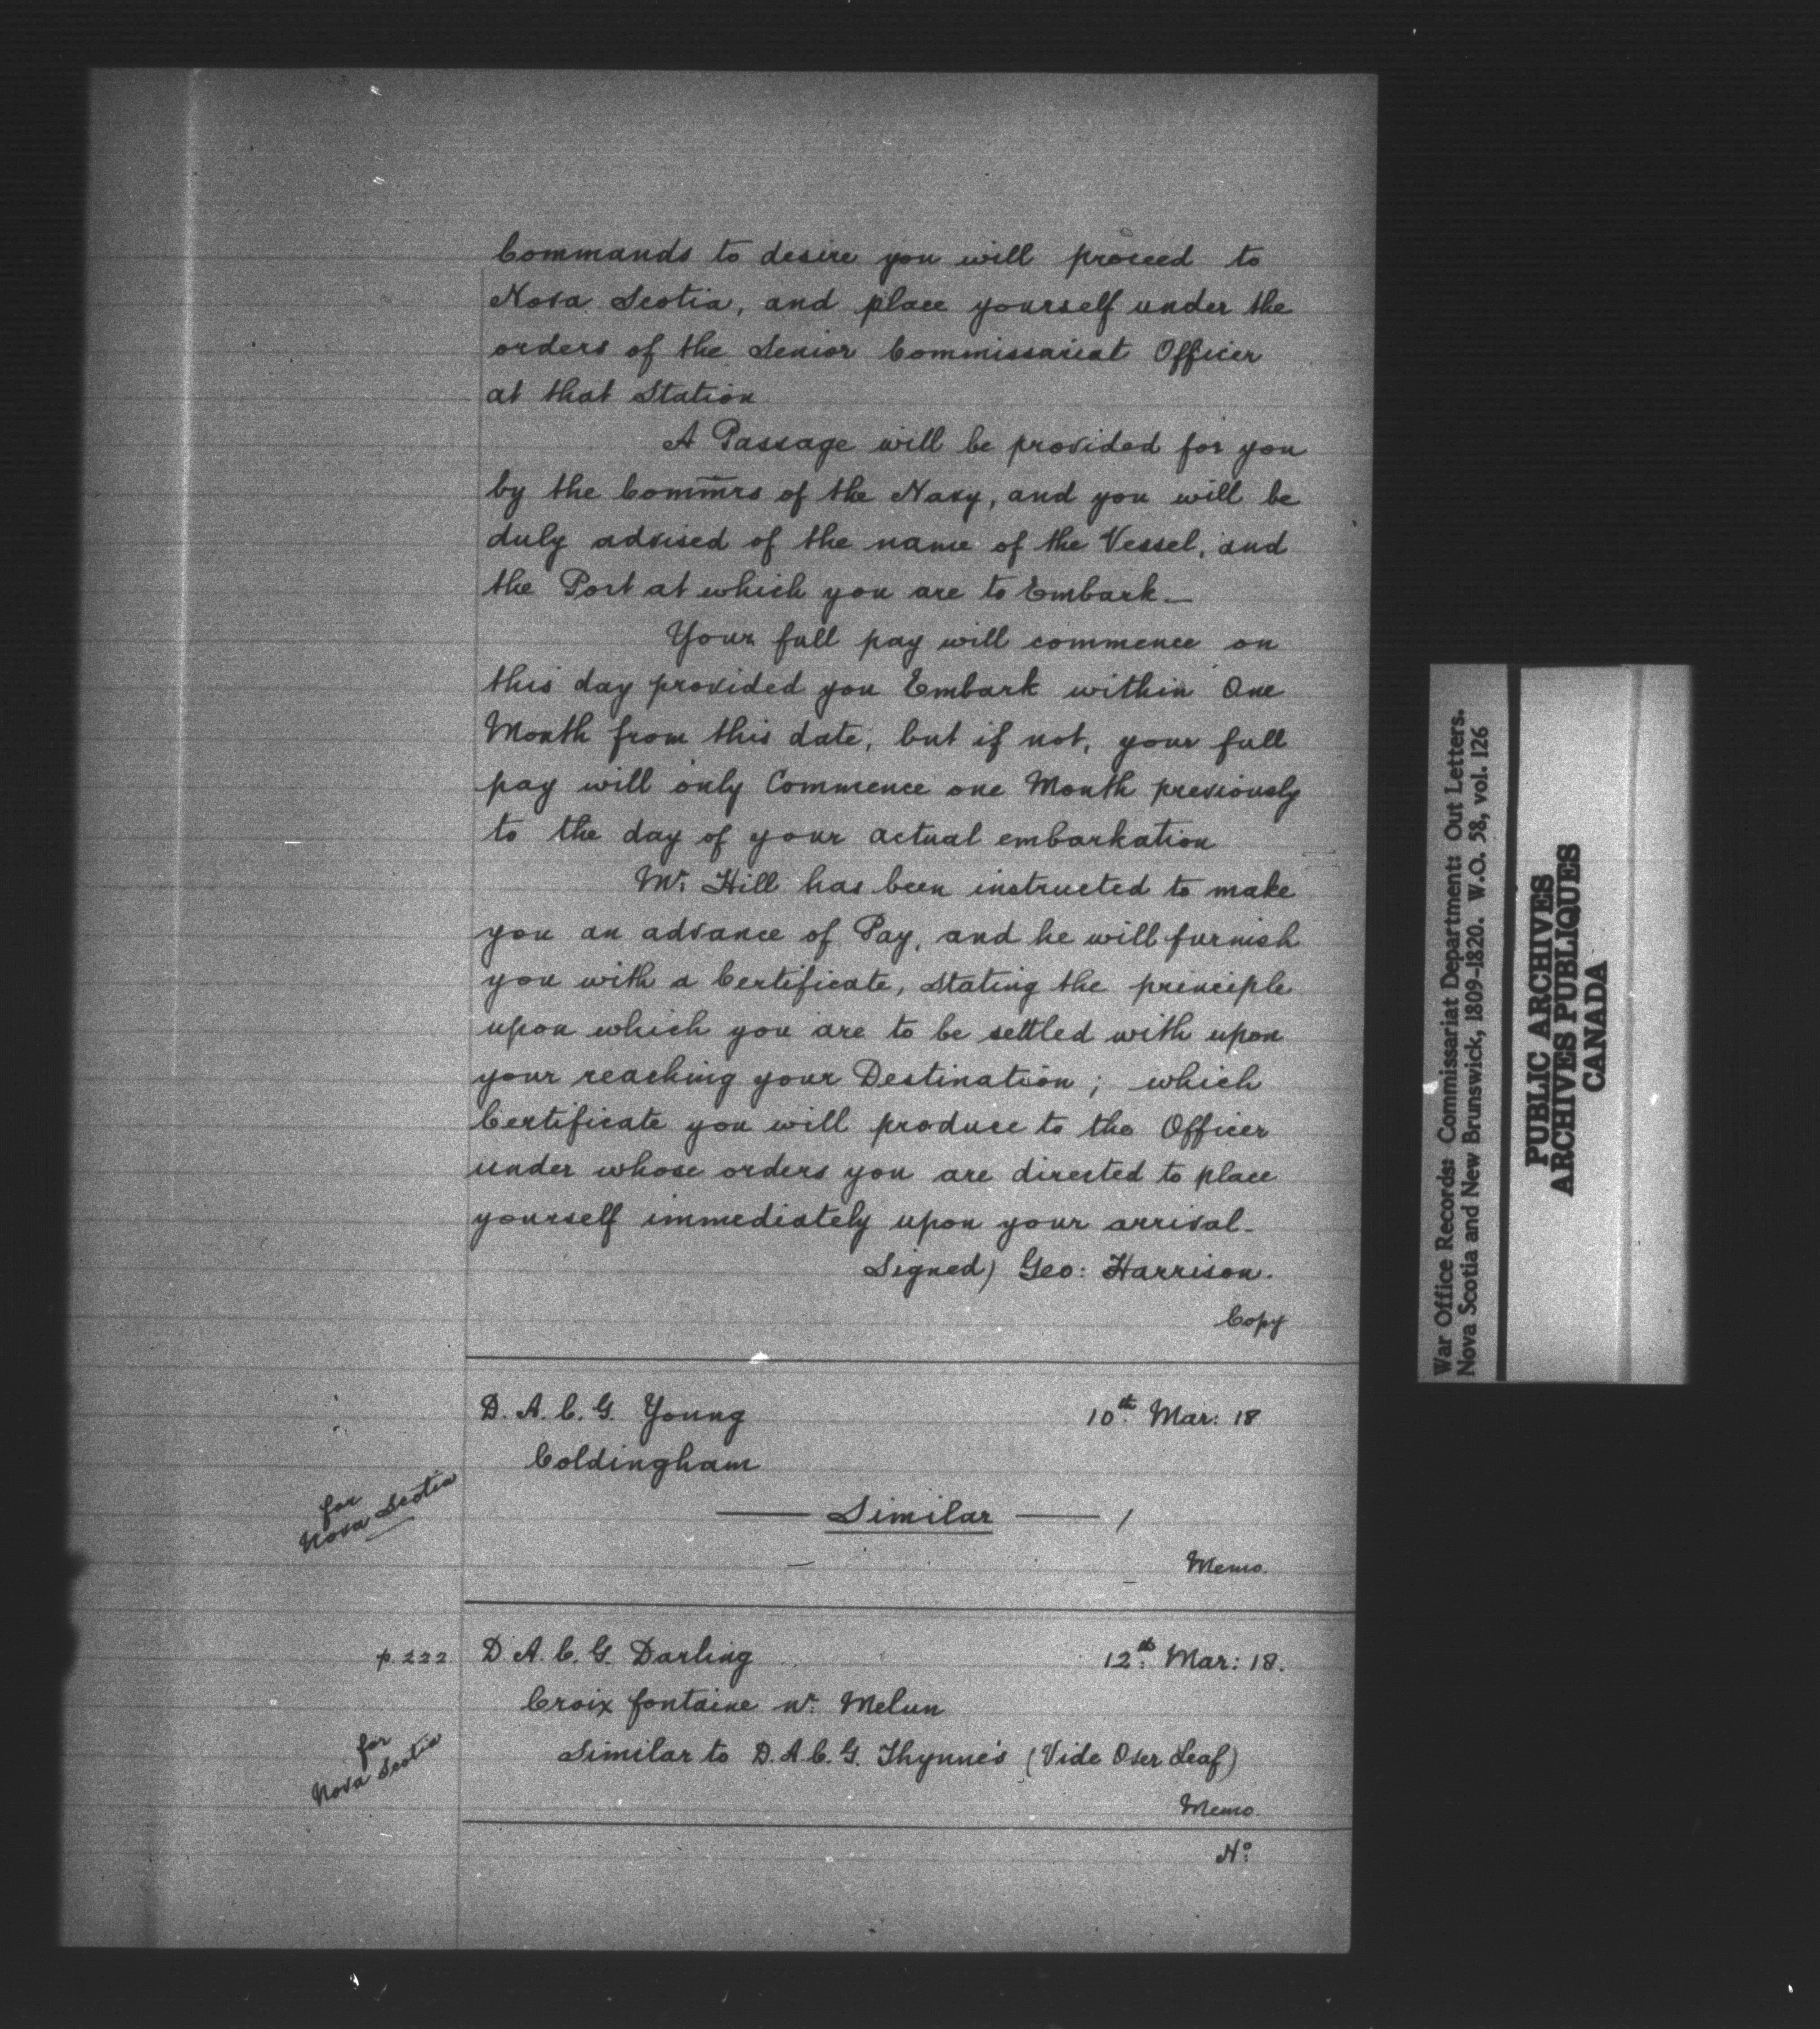 Commands to desire you will proceed to
Nova Scotia, and place yourself under the
orders of the Senior Commissariat Officer
at that Station
A Passage will be provided for you
by the Comm̅rs of the Navy, and you will be
duly advised of the name of the Vessel, and
the Port at which you are to Embark_
Your full pay will commence on
this day provided you Embark within One
Month from this date, but if not, your full
pay will only Commence one Month previously
to the day of your actual embarkation
Mr. Hill has been instructed to make
you an advance of Pay, and he will furnish
you with a Certificate, Stating the principle
upon which you are to be settled with upon
your reaching your Destination; which
Certificate you will produce to the Officer
under whose orders you are directed to place
yourself immediately upon your arrival_
Signed) Geo: Harrison.
Copy
D. A. C. G. Young 10th. Mar: 18
Coldingham
for
Nova Scotia
—— Similar —— /
Memo.
p. 222 D. A. C. G. Darling 12th. Mar: 18.
Croix fontaine nr. Melun
for
Nova Scotia
Similar to D. A. C. G. Thynne's (Vide Over Leaf)
Memo.
No.
War Office Records: Commissariat Department: Out Letters.
Nova Scotia and New Brunswick, 1809-1820. W.O. 58, vol. 126
PUBLIC ARCHIVES
ARCHIVES PUBLIQUES
CANADA